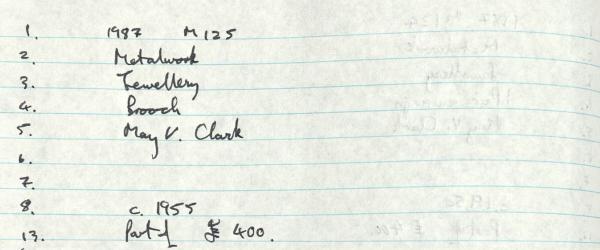 1. 1987 M125
2. Metalwork
3. Jewellery
4. Brooch
5. May V. Clark
6.
7.
8. c. 1955
13. Part of £ 400.